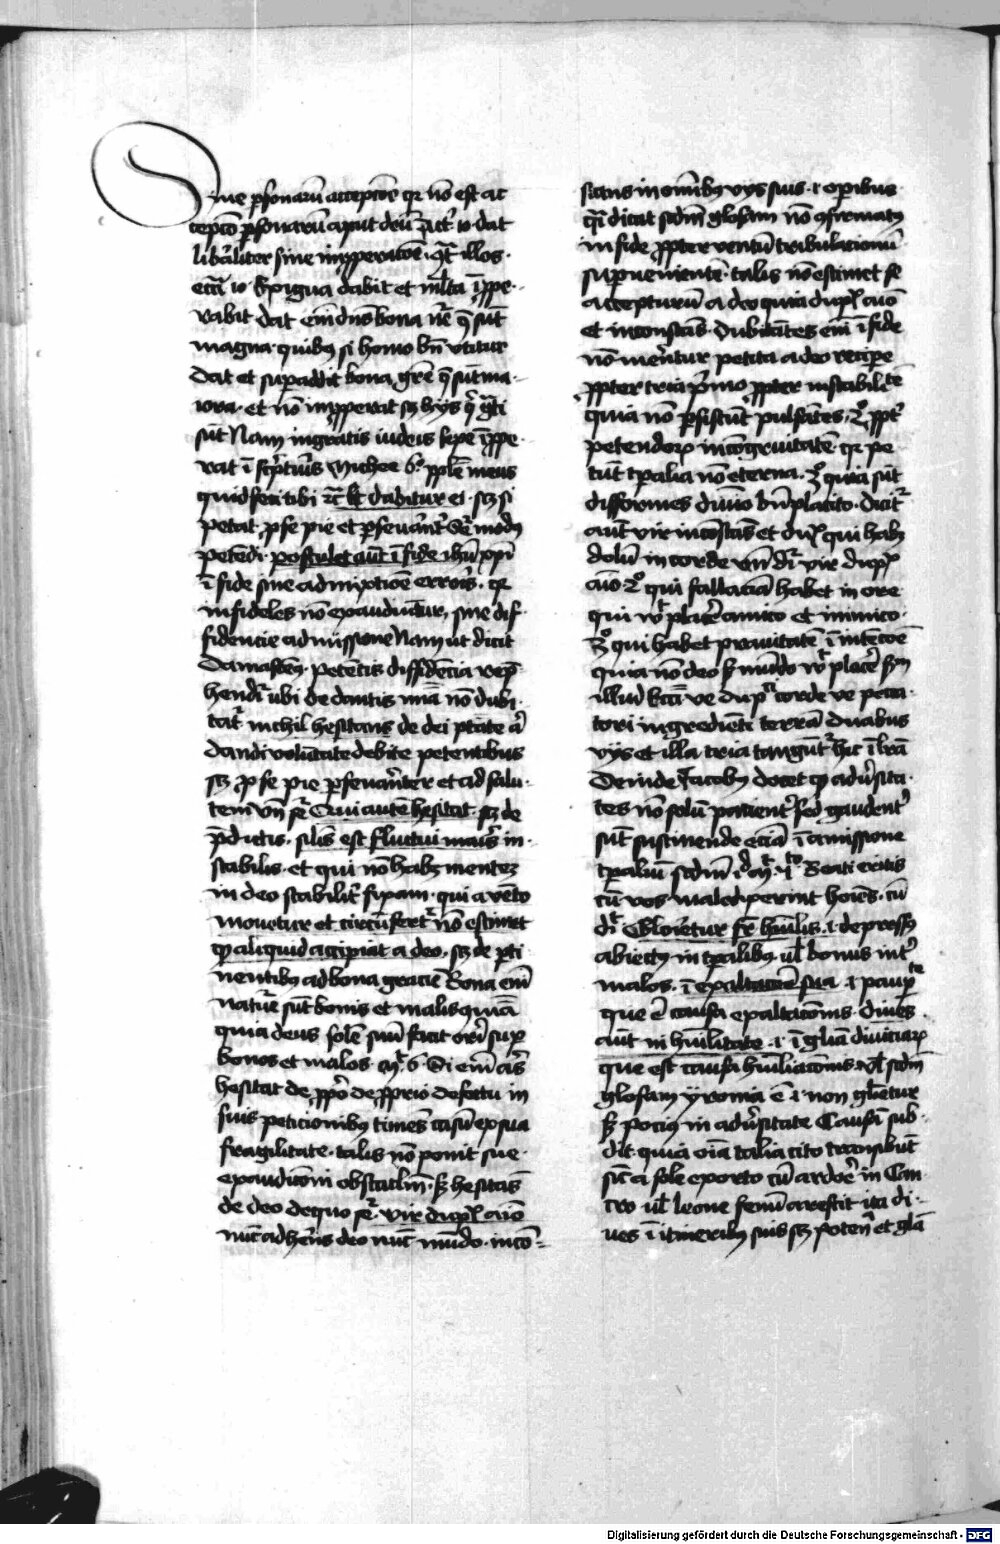 Sine p̄sonarū accepcōē qr nō est ac
cepcō p̄sonarū aput deū Act̄ 10 dat
lib̄aliter sine impperacōē
eccī 10 Exigua dabit et mlta īppe
rabit dat em̄ dns bona nē q̄ sūt
magna quibus si homo bn̄ vtitur
dat et supaddit bona gr̄e q̄ sūt ma
iora et nō impperat sꝫ hijs q̄ īgti
sūt Nam ingratis iudeis sepe īppe
rat ī sc̄pturis Michee 6° pplē meus
quid feci tibi rc̄ et dabitur ei scꝫ si
petat p se pie et p̄seuānt̄ modꝰ
petēdi postulet aūt ī fide ihū xpī
ī fide sine admixtione erroris qr
infideles nō exaudiūtur sine dif
fidencie admissione Nam ut dicit
Damascenꝰ petētis diffidēcia rep̄
hendr̄ ubi de dantis nō dubi
tat̄ nichil hesitans de dei ptāte
dandi volūtate debite petentibus
scꝫ p se pie p̄seuānter et ad salu
tem vn̄ Qui autē hesitat scꝫ de
p̄dictis silis est fluctui maris in
stabilis et qui nō habꝫ mentem
in deo stabilit̄ fixam qui a vēto
mouetur et circūfert̄ nō estimet
ꝙ aliquid accipiat a deo scꝫ de pti
nentibꝰ ad bona gracie Bona em̄
natur̄e sūt bonis et malis
quia deus solē suū facit oriri sup
bonos et malos mt̄ 6 Si em̄
hesitat de pprio defectu in
suis peticionibꝰ timēs casū ex sua
fragilitate talis nō ponit sue
exaudicōni obstaclm sꝫ hesitās
de deo de quo vir dupl̄ aīo
nūc adherēs deo nūc mūdo incō
stans in omnibꝰ vijs suis i opibus
dicat scdm glosam nō cōfirmatꝰ
in fide ppter ventū tribulacionū
supuenientē talis nō estimet se
accepturū a deo quia dupl̄ aīo
et inconstās Dubitātes em̄ ī fide
nō merentur petita a deo recipe
ppter tria primo ppter instabilitē
quia nō p̄sistūt pulsātes 2° ppt̄
petendoꝝ incōgruitatē qr pe
tūt tpalia nō eterna 3° quia sūt
difformes diuīo bn̄placito Dicit̄
aūt vir incōstās et dupl̄ qui habꝫ
dolū in corde vn̄ dr̄ vir dupl̄
aīo 2° qui fallaciā habet in ore
qui vl̄t placere amico et inimico
3° qui habet prauitatē ī intēcōē
quia nō deo sꝫ mūdo vl̄t placē
illud Eccī ve dupl̄ corde ve pecca
tori ingredienti terrā duabus
vijs et illa tria tangūt̄ hic ī lrā
Deinde Jacobꝰ docet ꝙ adūsita
tes nō solū pacient̄ sed gaudent̄
sūt sustinende eciā ī amissione
tpaliū scdm id mt̄ Beati eritis
cū vos maledixerint hoīes cū
dr̄ Glorietur fr̄ humilis i depressꝰ
abiectꝰ in tpalibꝰ ul̄ bonus int̄
malos ī exaltacōē sua i paup̄tē
que ē causa exaltacōnis Diues
aūt in humilitate i ī glīa diuiciaꝝ
que est causa humiliacōnis vl̄ scdm
glosam yronia ē i non glietur
sꝫ pocius in adūsitate Causā sub
dit quia oīa talia cito transibūt
sic̄ a sole exorto cū ardore in Can
cro ul̄ leone fenū arescit ita di
ues ī itineribꝰ suis scꝫ potēn et glā